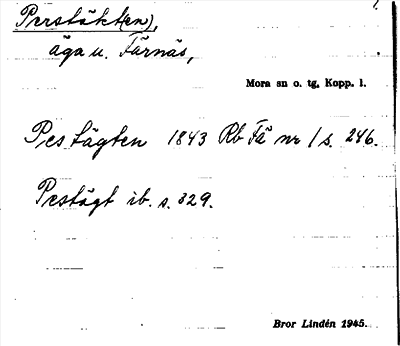 Perstäkt(en),
äga u. Färnäs,
Mora sn o. tg, Kopp. l.
Pestägten 1843 Rb Fä nr 1 s. 246.
Pestägt ib. s. 329.
Bror Lindén 1945.